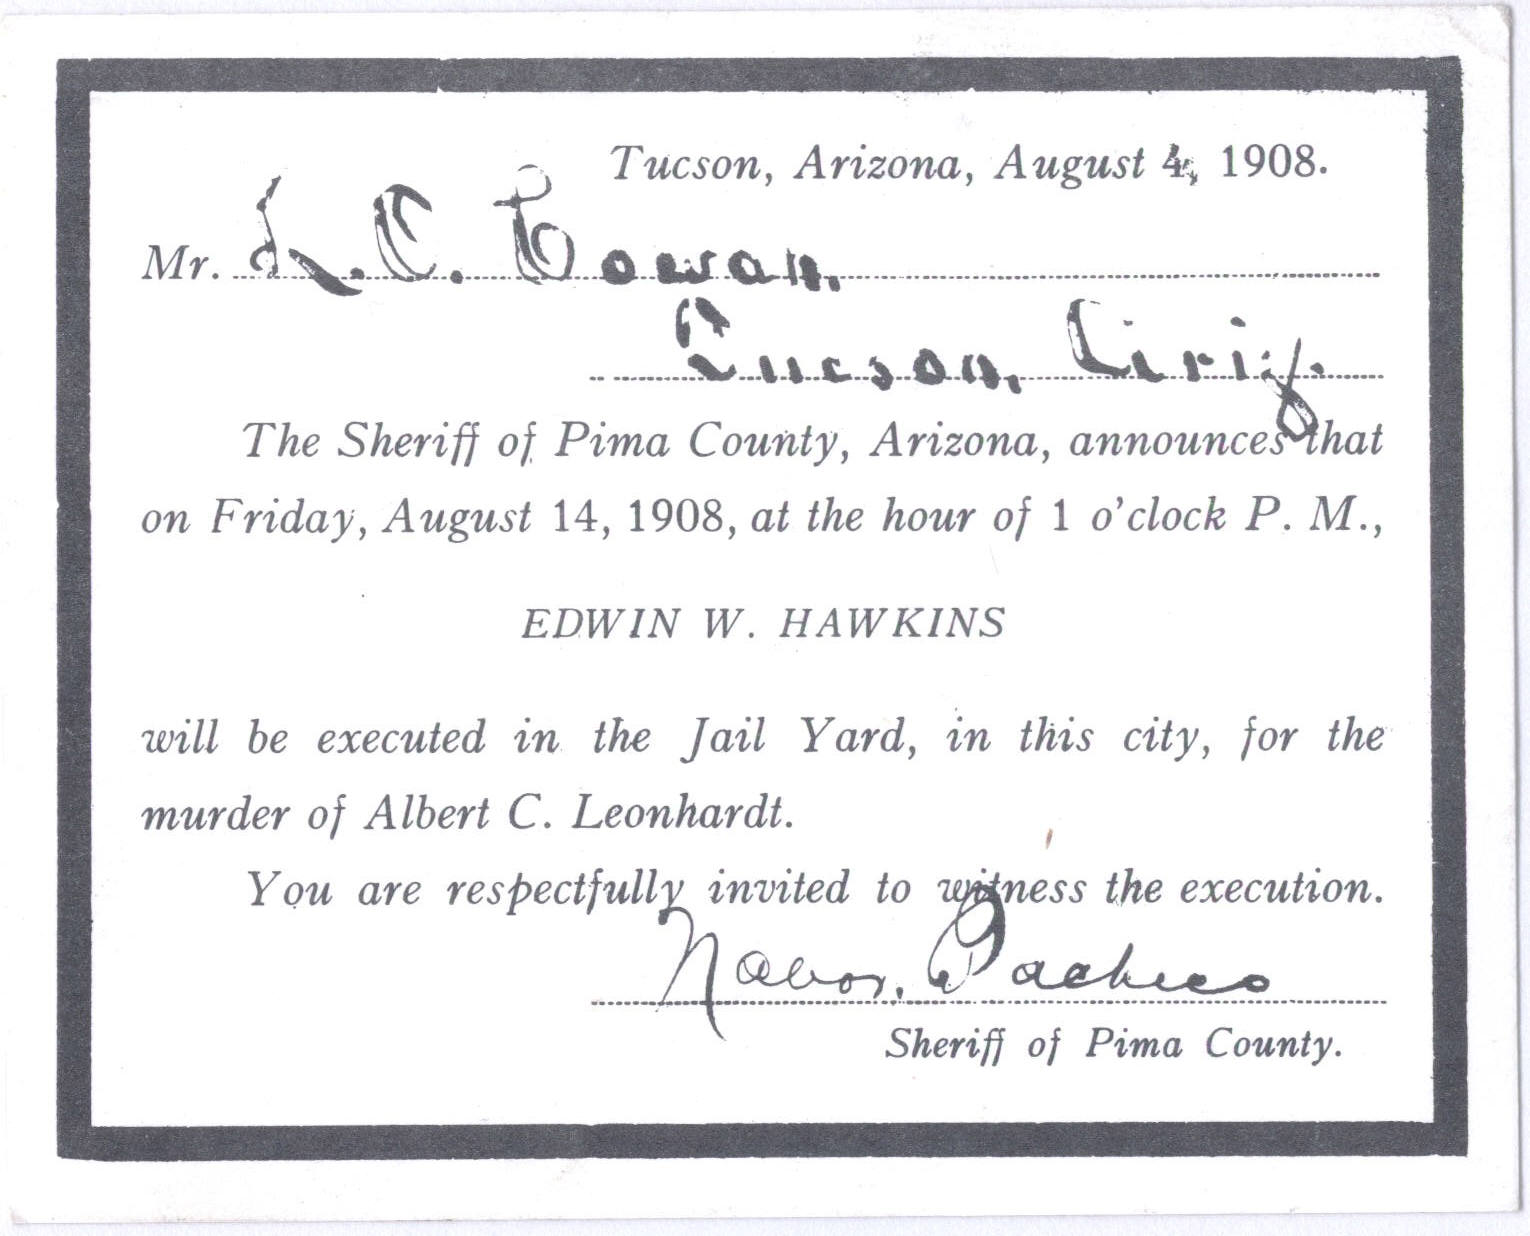 Tucson, Arizona, August 4, 1908.
Mr. L. C. Cowan,
Tucson, Ariz.
The Sheriff of Pima County, Arizona, announces that
on Friday, August 14, 1908, at the hour of 1 o'clock P. M.,
EDWIN W. HAWKINS
will be executed in the Jail Yard, in this city, for the
murder of Albert C. Leonhardt.
You are respectfully invited to witness the execution.
Nabor. Pacheco
Sheriff of Pima County.